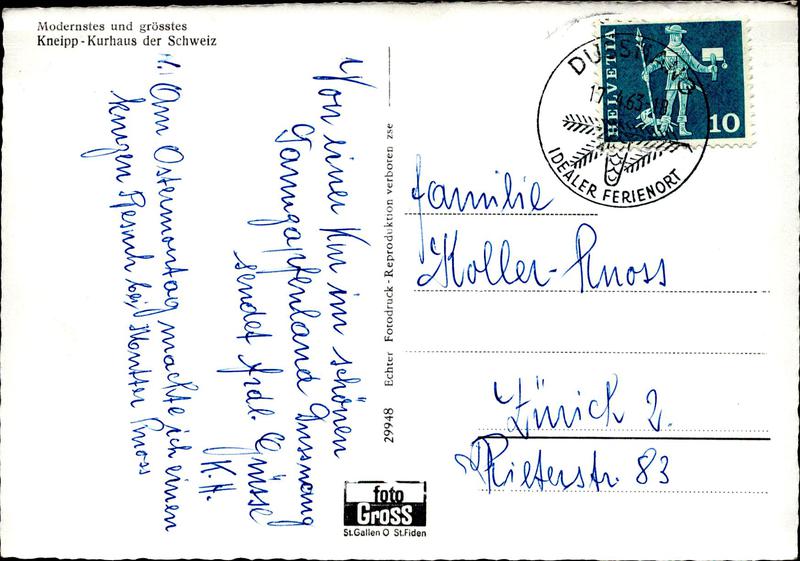 Modernstes und grösstes
Kneipp-Kurhaus der Schweiz
Von einer Kur im schönen
Tannzapfenland Dussnang
sendet frdl. Grüsse
K. H.
Am Ostermontag machte ich einen
kurzen Besuch bei Mutter Knoss
29948 Echter Fotodruck - Reproduktion verboren zse
foto
GROSS
St.Gallen O St.Fiden
HELVETIA
10
DUSSNANG
17. 4.63-18
IDEALER FERIENORT
Familie
Koller-Knoss
Zürich 2.
Rieterstr. 83